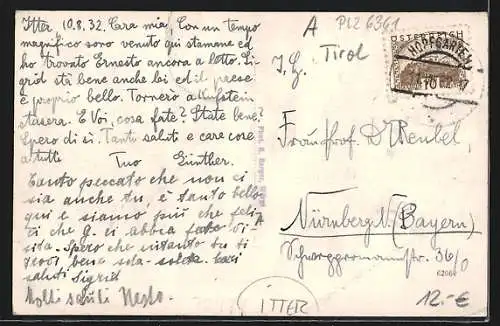 Itter 10.8.32. Cara mia, Con un tempo
magnifico sono venuto qui stamane ed
ho trovato Ernesto ancora a letto. Si-
grid stà bene anche lei ed il paese
è proprio bello. Tornerò a Kufstein
stasera. E Voi, cosa fate? State bene?
Spero di sì. Tanti saluti e care cose
a tutti
Tuo Günther.
Tanto peccato che non ci
sia anche tu, è tanto bello
qui e siamo più che feli-
ci che G. ci abbia fatto vi-
sita. Spero che intanto tu ti
trovi bene
saluti Sigrid
Molti saluti
A PLZ 6361
I.G. Tirol
ÖSTERREICH
HOPFGARTEN
Nürnberg N. (Bayern)
36/0
62066
ITTER
12.-€